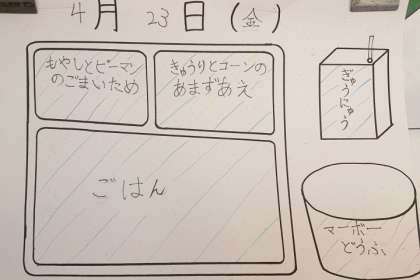 4月23日(金)
もやしとピーマン
のごまいため
きゅうりとコーンの
あまずあえ
ぎゅうにゅう
ごはん
マーボー
どうふ